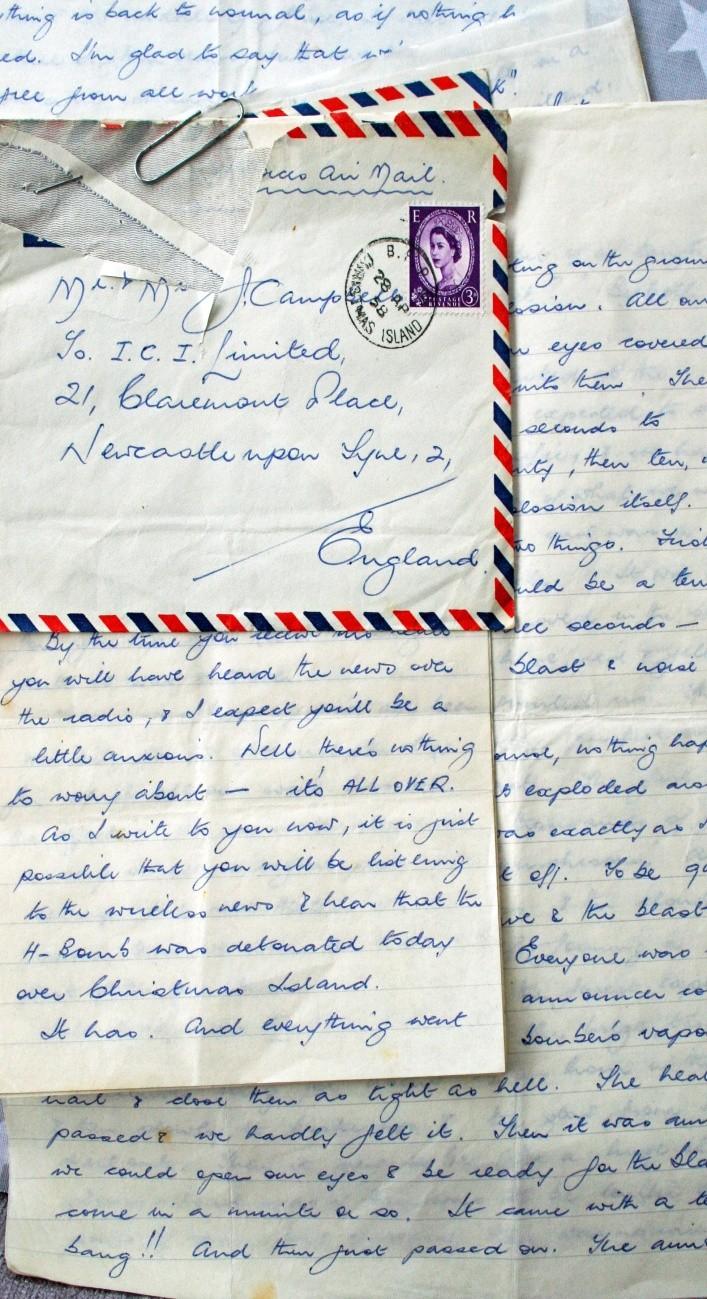 thing is back to normal, as if nothing h
ed. I'm glad to say that
free from all
Air Mail.
E R
POSTAGE
REVENUE
3D
B.
28 AP
58
MAS ISLAND
Mr. & Mrs J. Camp
To. I.C.I. Limited,
21, Claremont Place,
Newcastle upon Tyne, 2,
England.
By the time you
you will have heard the news over
the radio, & I expect you'll be a
little anxious. Well there's nothing
to worry about — it's ALL OVER.
As I write to you now, it is just
possible that you will be listening
to the wireless news & hear that the
H-Bomb was detonated today
over Christmas Island.
It has. And everything went
ting on the groun
losion. All ou
eyes covered
into them. The
seconds to
nty, then ten,
losion itself.
o things. First
uld be a ten
ee seconds —
blast & noise
ound, nothing hap
exploded
as exactly as
t off. To be qu
ve & the blast
Everyone was
announcer co
bomber's vapo
& close them as tight as hell. The heat
passed & we hardly felt it. Then it was ann
we could open our eyes & be ready for the bla
come in a minute or so. It came with a te
bang!! And then just passed on. The